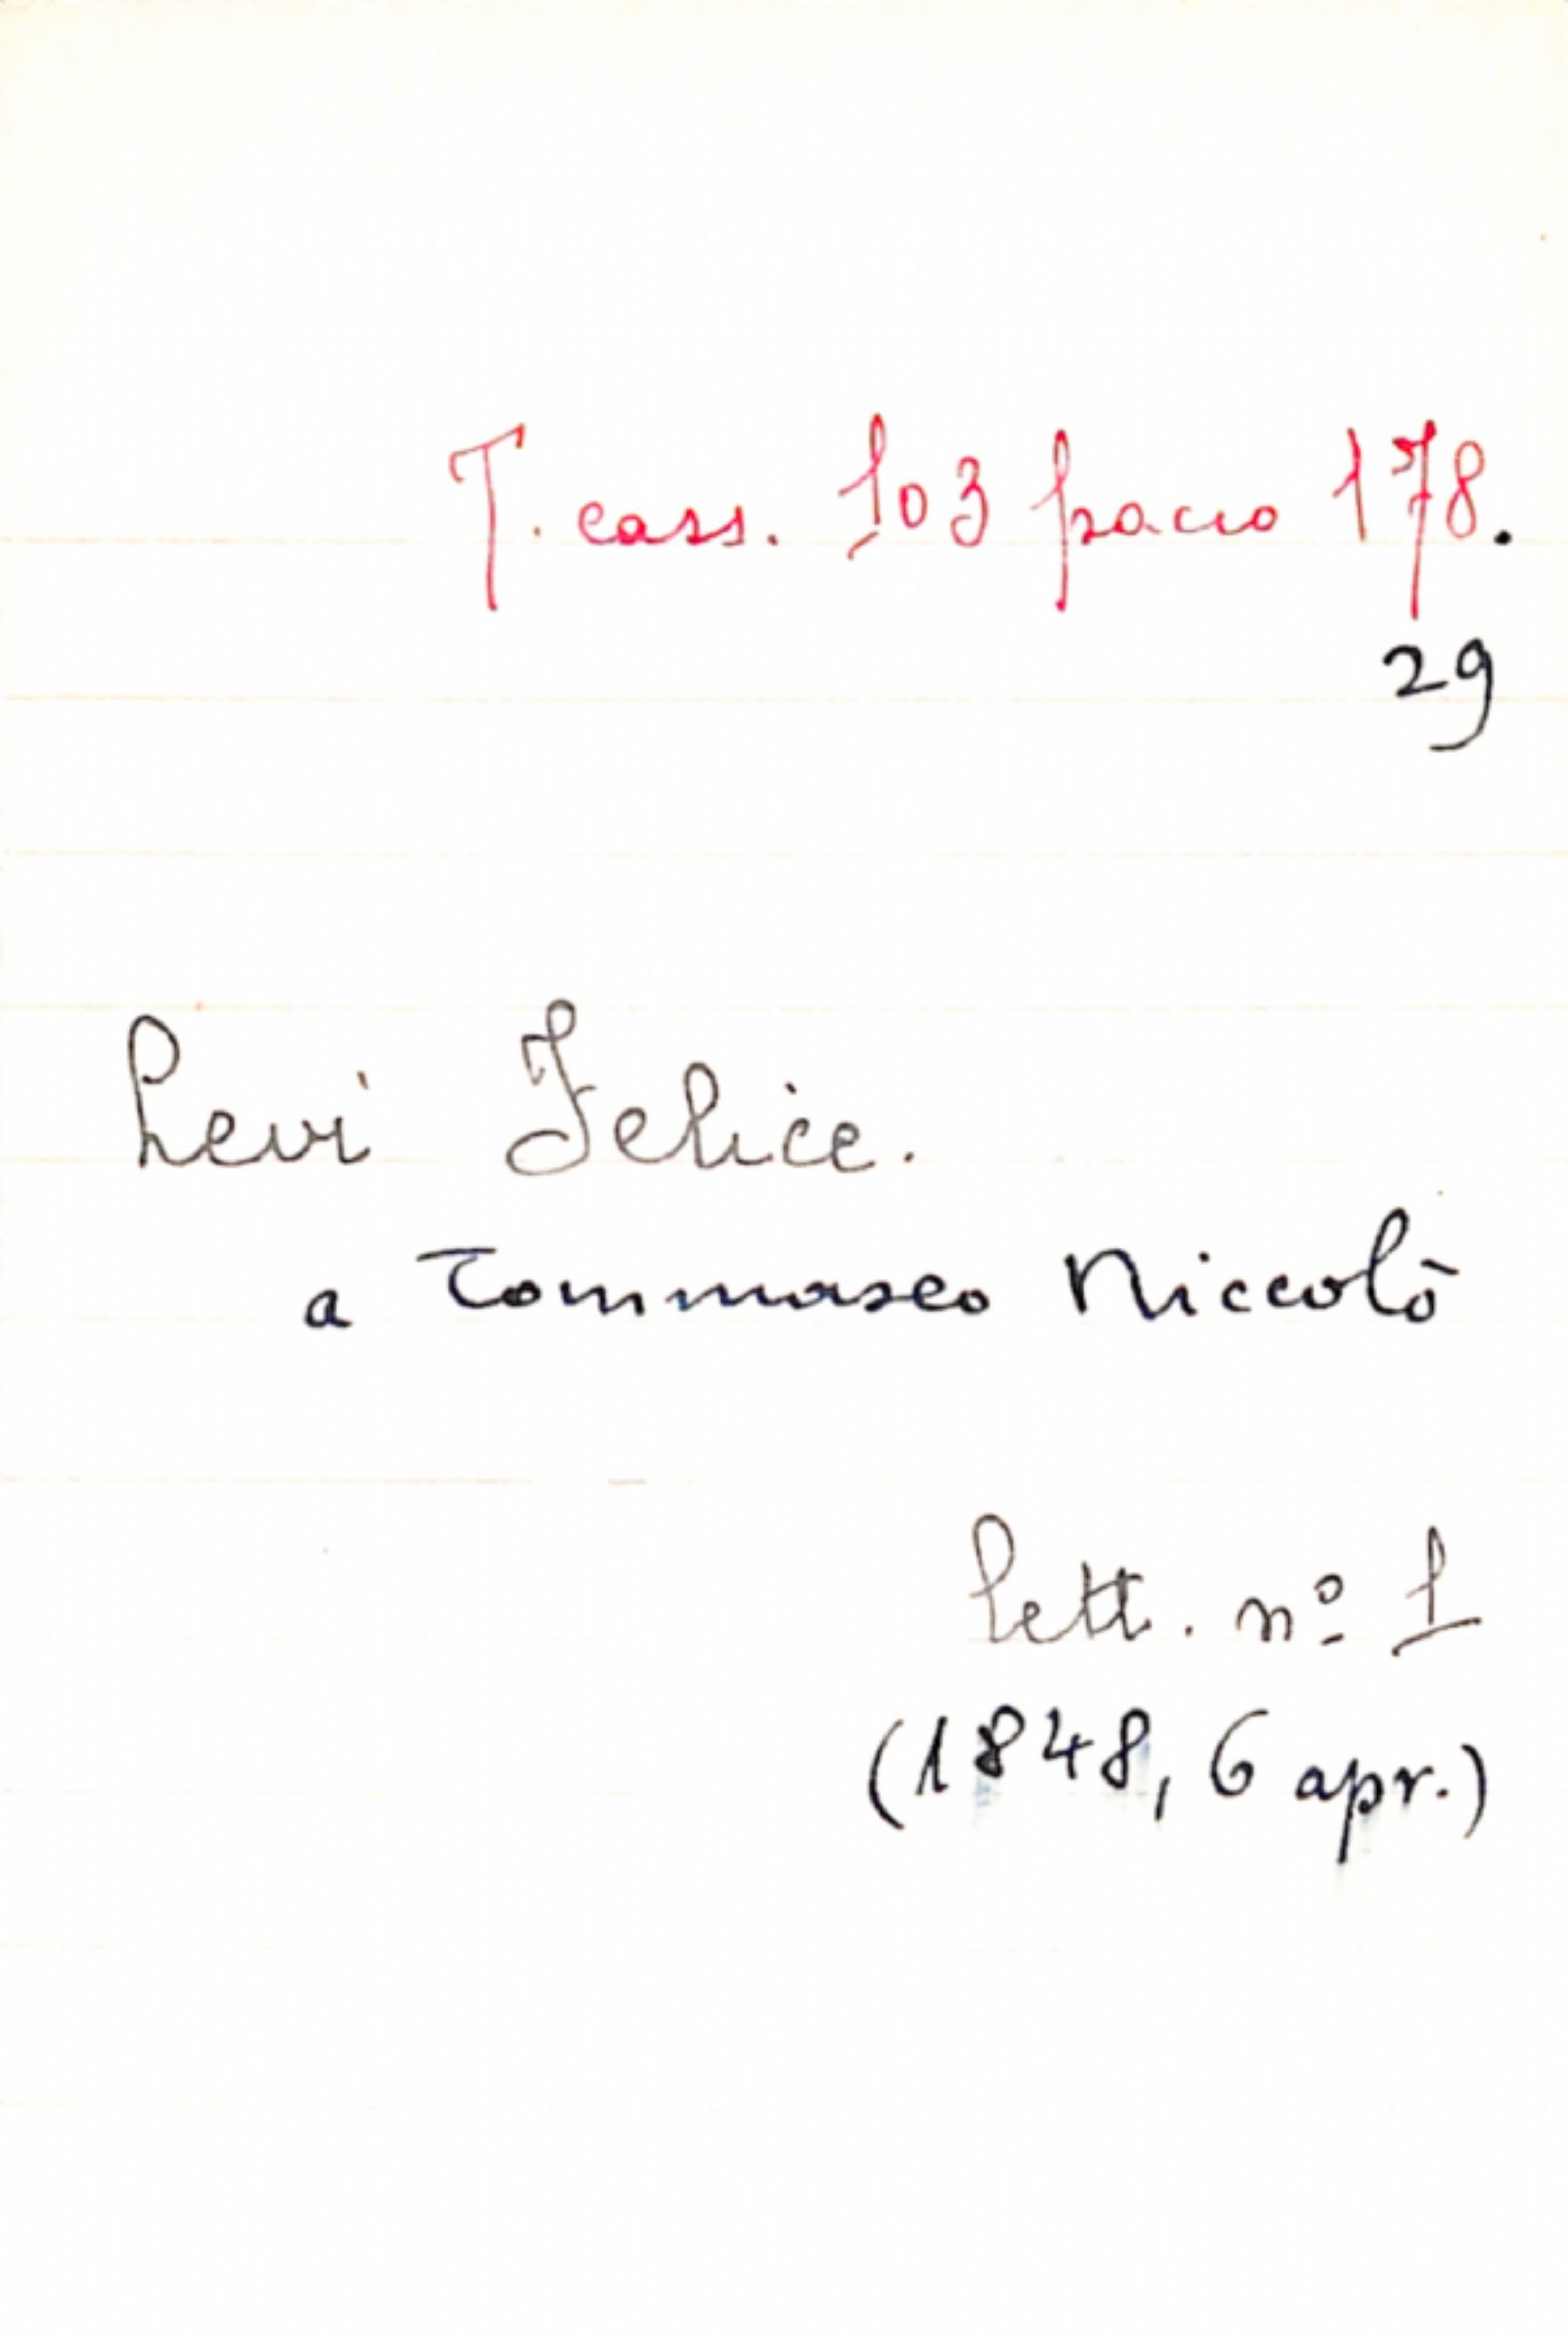 T. cass. 103 pacco 178.
29
Levi Felice.
a Tommaseo Niccolò
Lett. nº 1
(1848, 6 apr.)